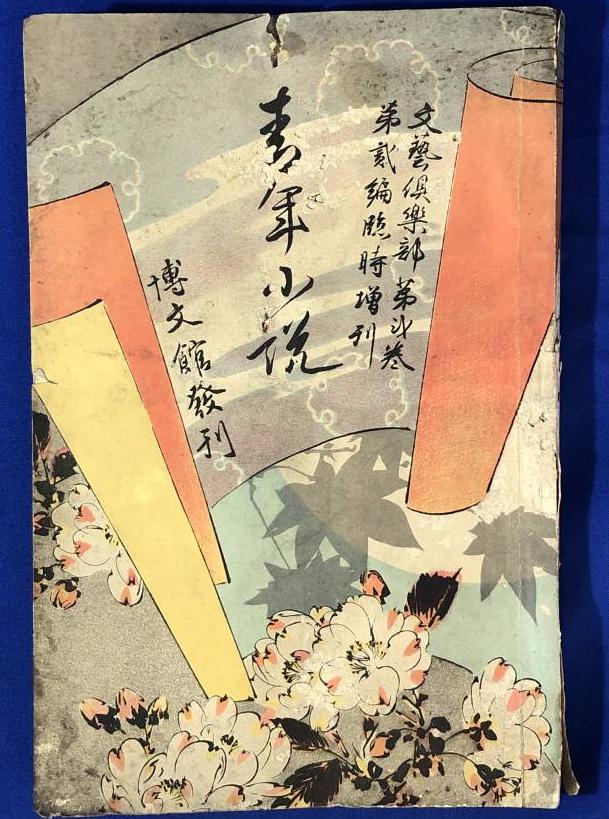 文藝倶樂部第弐巻
第貳編臨時増刊
青年小説
博文館發刊